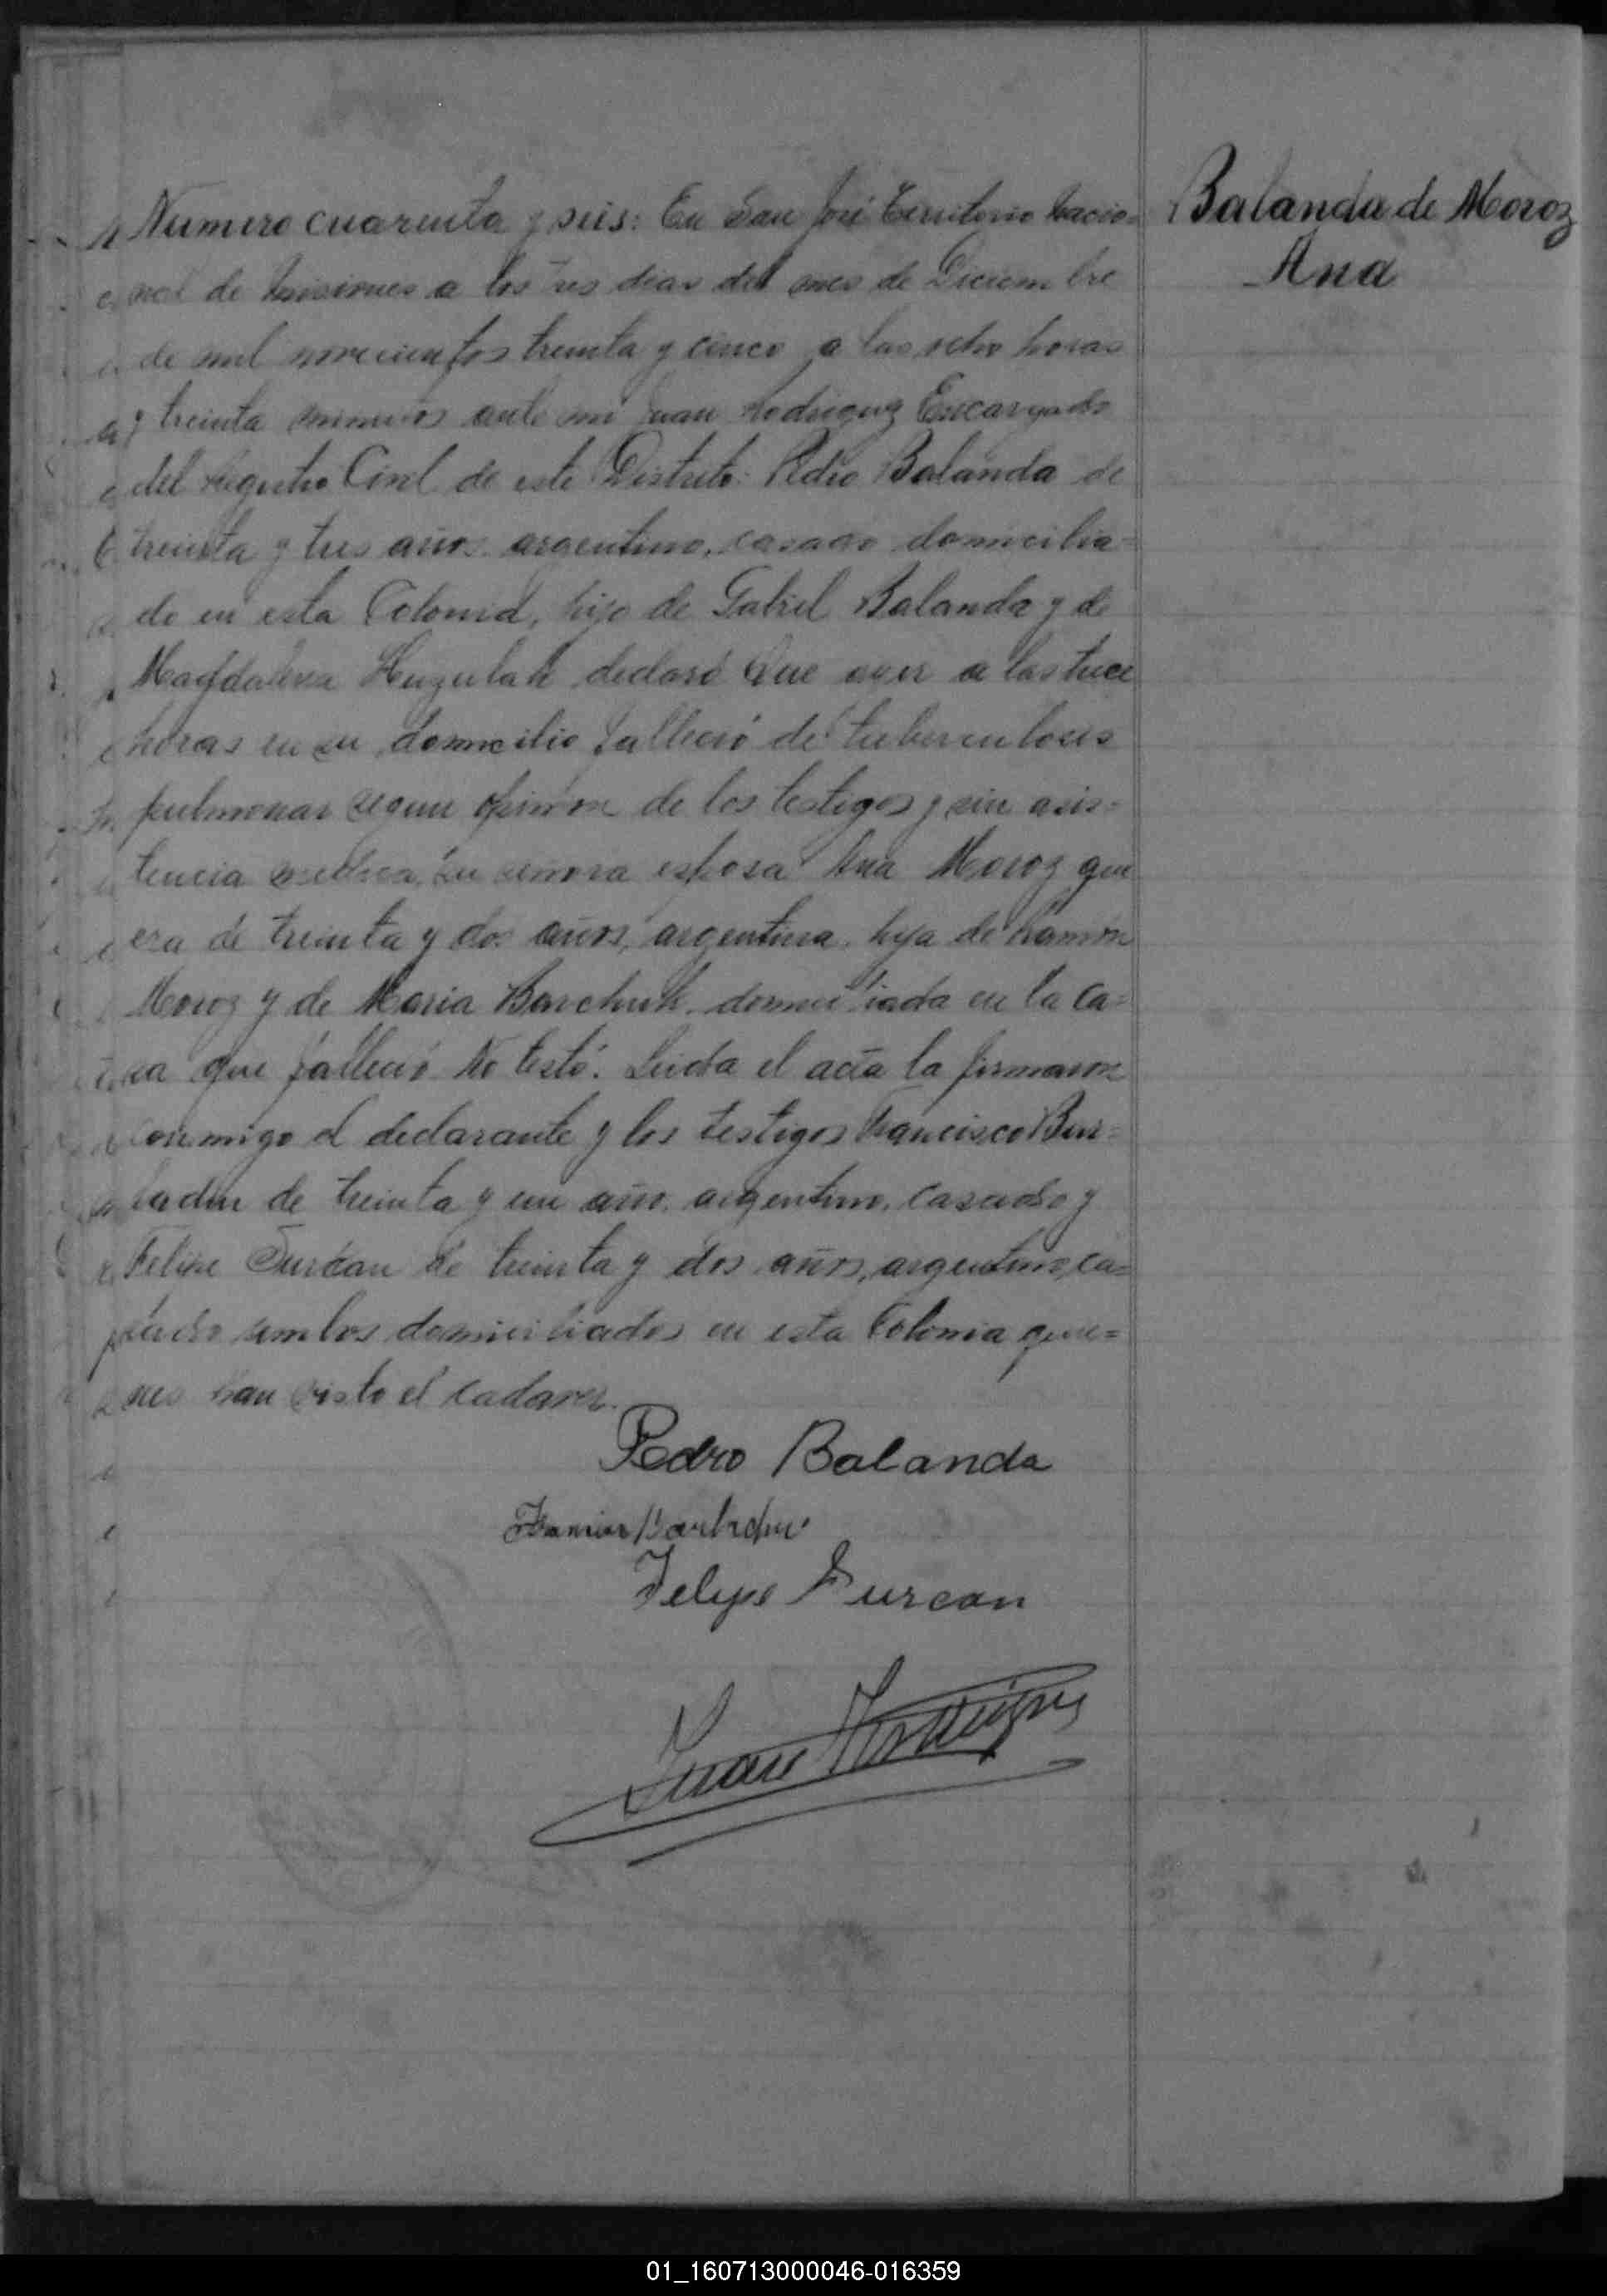 Balanda de Moroz
Ana
Numero cuarenta y seis: En San José Territorio Nacio=
nal de Misiones a los tres dias del mes de Diciembre
de mil novecientos treinta y cinco a las ocho horas
y treinta minutos ante mi Juan Rodriguez Encargado
del Registro Civil de este Distrito: Pedro Balanda de
treinta y tres años argentino, casado domicilia=
do en esta Colonia, hijo de Gabriel Balanda y de
Magdalena Huzulak declaró Que ayer a las trece
horas en su domicilio falleció de tuberculosis
pulmonar segun opinion de los testigos y sin asis=
tencia medica, su señora esposa Ana Moroz que
era de treinta y dos años, argentina, hija de Ramon
Moroz y de Maria Barchuk, domiciliada en la ca=
sa que falleció No testó. Leida el acta la firmaron
conmigo el declarante y los testigos Francisco
de treinta y un año, argentino, casado y
Felipe Turcan de treinta y dos años, argentino, ca=
sado ambos domiciliados en esta Colonia quie=
nes han visto el cadaver.
Pedro Balanda
Felipe Turcan
Juan Rodriguez
01_160713000046-016359